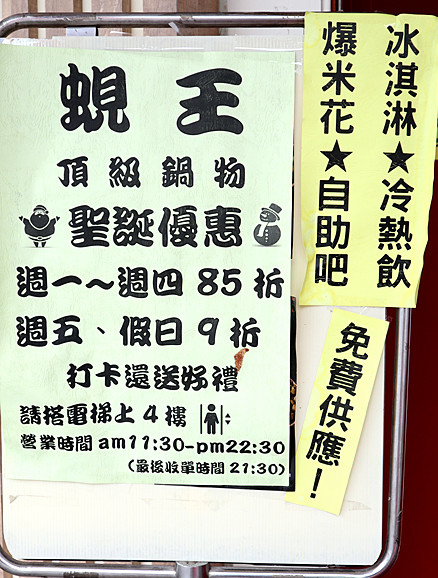 蜆王
頂級鍋物
聖誕優惠
週一~週四 85 折
週五、假日 9 折
打卡還送好禮
請搭電梯上 4 樓
營業時間 am11:30-pm22:30
(最後收單時間 21:30)
冰淇淋★冷熱飲
爆米花★自助吧
免費供應!